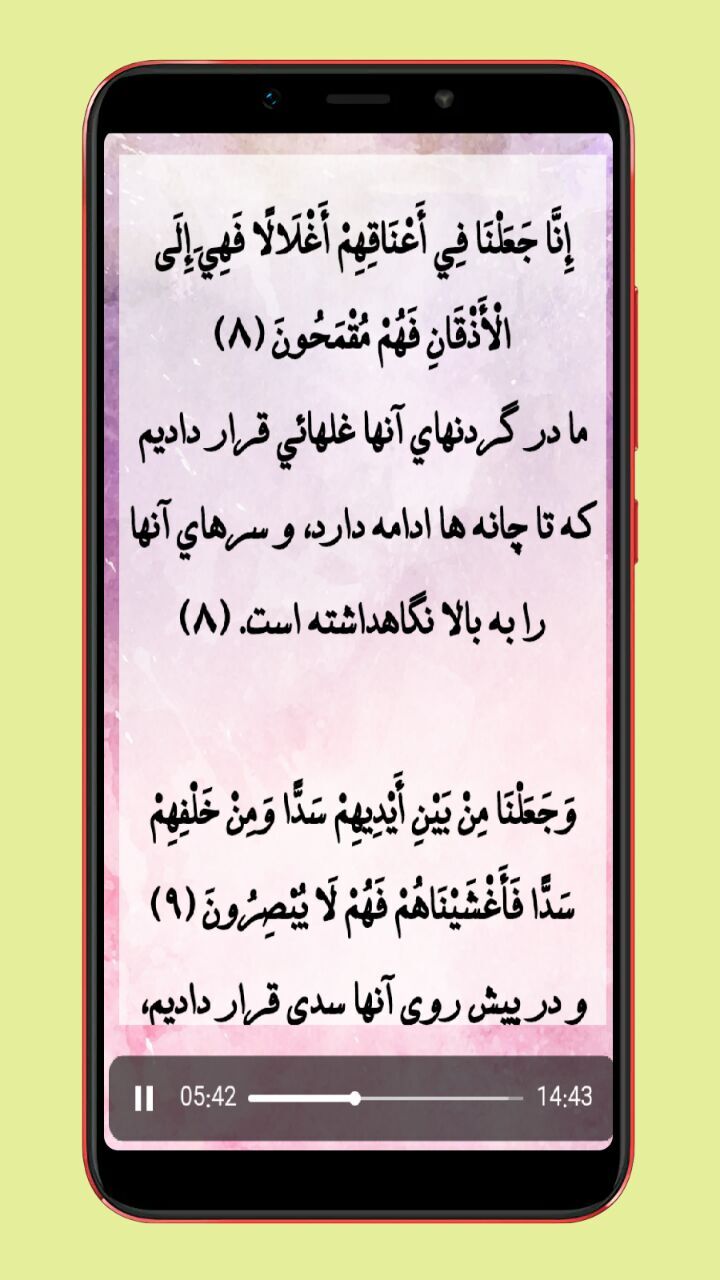 إِنَّا جَعَلْنَا فِي أَعْنَاقِهِمْ أَغْلَالًا فَهِيَ إِلَى
الْأَذْقَانِ فَهُمْ مُقْمَحُونَ (٨)
ما در گردنهاي آنها غلهائي قرار داديم
که تا چانه ها ادامه دارد، و سرهاي آنها
را به بالا نگاهداشته است. (٨)
وَجَعَلْنَا مِنْ بَيْنِ أَيْدِيهِمْ سَدًّا وَمِنْ خَلْفِهِمْ
سَدًّا فَأَغْشَيْنَاهُمْ فَهُمْ لَا يُبْصِرُونَ (٩)
و در پيش روی آنها سدی قرار داديم،
05:42 14:43